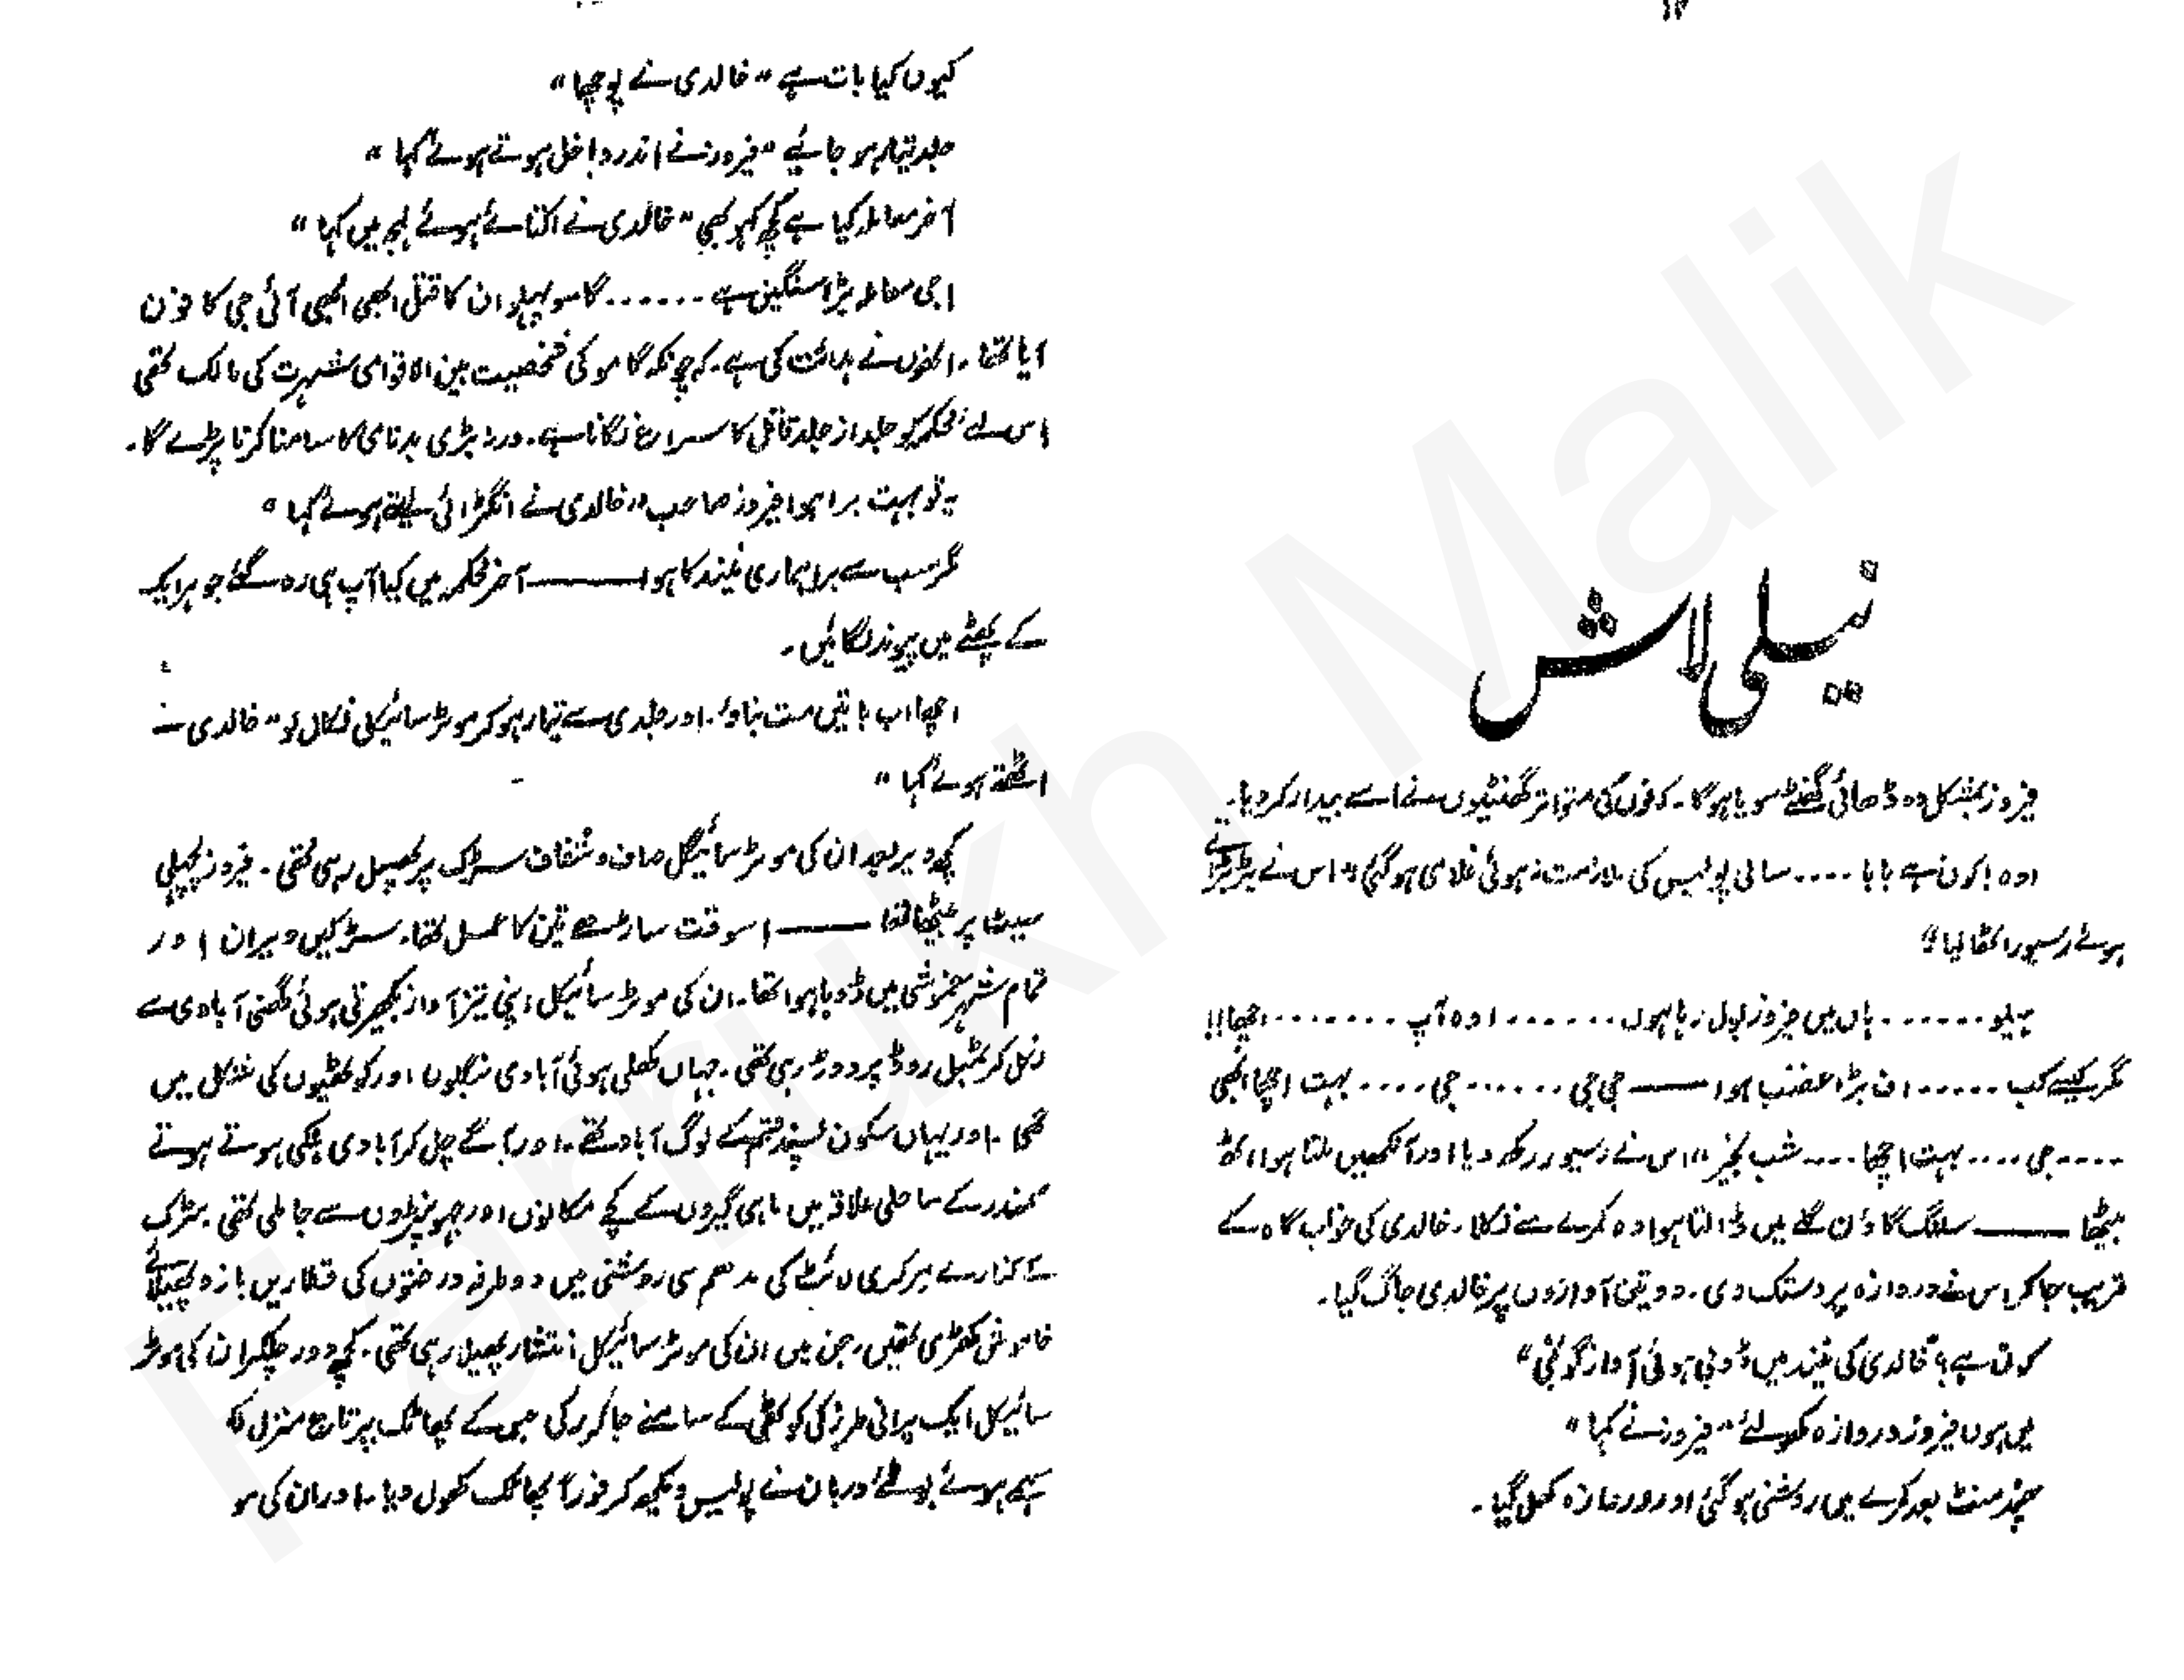 ۱۷
نیلی لاش
فیروز بمشکل دو ڈھائی گھنٹے سویا ہوگا۔ کہ فون کی متواتر گھنٹیوں نے اسے بیدار کر دیا۔
اوہ! کون ہے بابا .... سالی پولیس کی ملازمت نہ ہوئی غلامی ہوگئی "اس نے بڑبڑاتے
ہوئے رسیور اٹھا لیا"
ہیلو ....... ہاں میں فیروز بول رہا ہوں ....... اوہ آپ ........ اچھا!!
مگر کیسے کب ...... اف بڑا غضب ہوا —— جی جی ....... جی .... بہت اچھا ابھی
.... جی .... بہت اچھا .... شب بخیر "اس نے رسیور رکھ دیا اور آنکھیں ملتا ہوا اٹھ
بیٹھا —— سلپنگ گاؤن گلے میں ڈالتا ہوا وہ کمرے سے نکلا۔ خالدی کی خواب گاہ کے
قریب جا کر اس نے دروازہ پر دستک دی۔ دو تین آوازوں پر خالدی جاگ گیا۔
کون ہے؟ "خالدی کی نیند میں ڈوبی ہوئی آواز گونجی"
میں ہوں فیروز دروازہ کھولئے "فیروز نے کہا"
چند منٹ بعد کمرے میں روشنی ہوگئی اور دروازہ کھل گیا۔
کیوں کیا بات ہے "خالدی نے پوچھا"
جلد تیار ہو جائیے "فیروز نے اندر داخل ہوتے ہوئے کہا"
آخر معاملہ کیا ہے کچھ کہو بھی "خالدی نے اکتائے ہوئے لہجہ میں کہا"
اجی معاملہ بڑا سنگین ہے ...... گامو پہلوان کا قتل ابھی ابھی آئی جی کا فون
آیا تھا۔ انھوں نے ہدائت کی ہے۔ کہ چونکہ گامو کی شخصیت بین الاقوامی شہرت کی مالک تھی
اس لئے محکمہ کو جلد از جلد قاتل کا سراغ لگانا ہے۔ ورنہ بڑی بدنامی کا سامنا کرنا پڑے گا۔
یہ تو بہت برا ہوا فیروز صاحب "خالدی نے انگڑائی لیتے ہوئے کہا"
مگر سب سے برا ہماری نیند کا ہوا —— آخر محکمہ میں کیا آپ ہی رہ گئے جو ہر ایک
کے پھٹے میں پیوند لگائیں۔
اچھا اب باتیں مت بناؤ۔ اور جلدی سے تیار ہو کر موٹر سائیکل نکال لو "خالدی نے
اٹھتے ہوئے کہا"
کچھ دیر بعد ان کی موٹر سائیکل صاف و شفاف سڑک پر پھسل رہی تھی۔ فیروز پچھلی
سیٹ پر بیٹھا تھا —— اسوقت ساڑھے تین کا عمل تھا۔ سڑکیں ویران اور
تمام شہر خموشی میں ڈوبا ہوا تھا۔ ان کی موٹر سائیکل اپنی تیز آواز بکھیرتی ہوئی گھنی آبادی سے
نکل کر ٹمپل روڈ پر دوڑ رہی تھی۔ جہاں کھلی ہوئی آبادی بنگلوں اور کوٹھیوں کی شکل میں
تھی۔ اور یہاں سکون پسند قسم کے لوگ آباد تھے۔ اور آگے چل کر آبادی ہلکی ہوتے ہوتے
سمندر کے ساحلی علاقہ میں ماہی گیروں کے کچے مکانوں اور جھونپڑوں سے جا ملی تھی۔ سڑک
کے کنارے مرکری لائٹ کی مدھم سی روشنی میں دو طرفہ درختوں کی قطاریں بازو پھیلائے
خاموش کھڑی تھیں۔ جن میں ان کی موٹر سائیکل انتشار پھیلا رہی تھی۔ کچھ دور چلکر ان کی موٹر
سائیکل ایک پرانی طرز کی کوٹھی کے سامنے جا کر رکی جس کے پھاٹک پر تاج منزل
سہمے ہوئے بوڑھے دربان نے پولیس دیکھ کر فوراً پھاٹک کھول دیا۔ اور ان کی مو
Farrukh Malik